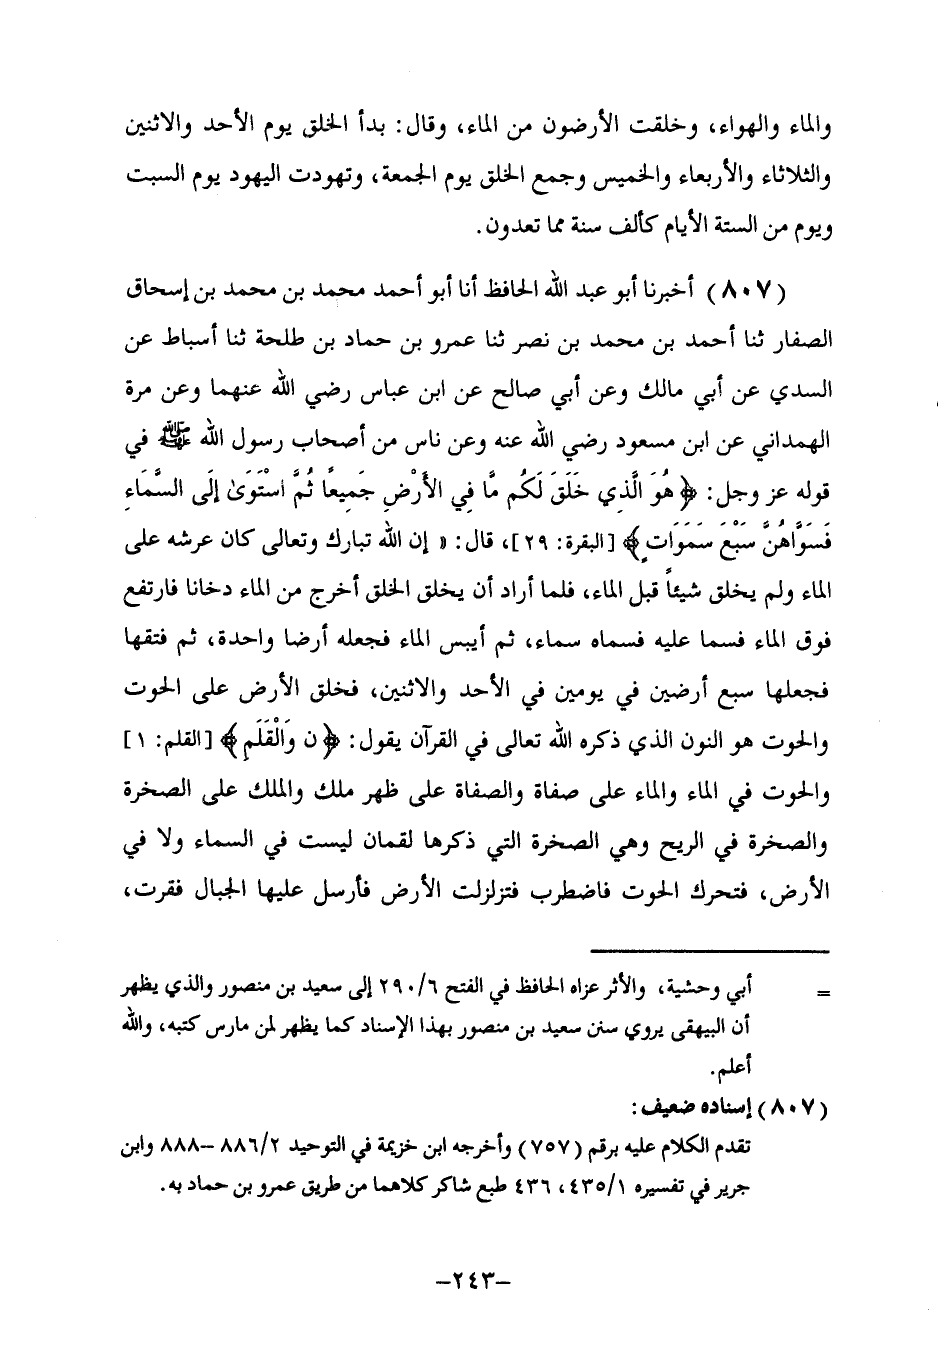 والماء والهواء، وخلقت الأرضون من الماء، وقال: بدأ الخلق يوم الأحد والاثنين
والثلاثاء والأربعاء والخميس وجمع الخلق يوم الجمعة، وتهودت اليهود يوم السبت
ويوم من الستة الأيام كألف سنة مما تعدون.
(٨٠٧) أخبرنا أبو عبد الله الحافظ أنا أبو أحمد محمد بن محمد بن إسحاق
الصفار ثنا أحمد بن محمد بن نصر ثنا عمرو بن حماد بن طلحة ثنا أسباط عن
السدي عن أبي مالك وعن أبي صالح عن ابن عباس رضي الله عنهما وعن مرة
الهمداني عن ابن مسعود رضي الله عنه وعن ناس من أصحاب رسول الله ﷺ في
قوله عز وجل: ﴿ هُوَ الَّذِي خَلَقَ لَكُم مَّا فِي الأَرْضِ جَمِيعاً ثُمَّ اسْتَوَىٰ إِلَى السَّمَاءِ
فَسَوَّاهُنَّ سَبْعَ سَمَوَاتٍ ﴾ [البقرة: ٢٩]، قال: « إن الله تبارك وتعالى كان عرشه على
الماء ولم يخلق شيئاً قبل الماء، فلما أراد أن يخلق الخلق أخرج من الماء دخانا فارتفع
فوق الماء فسما عليه فسماه سماء، ثم أيبس الماء فجعله أرضا واحدة، ثم فتقها
فجعلها سبع أرضين في يومين في الأحد والاثنين، فخلق الأرض على الحوت
والحوت هو النون الذي ذكره الله تعالى في القرآن يقول: ﴿ ن وَالْقَلَمِ ﴾ [القلم: ١]
والحوت في الماء والماء على صفاة والصفاة على ظهر ملك والملك على الصخرة
والصخرة في الريح وهي الصخرة التي ذكرها لقمان ليست في السماء ولا في
الأرض، فتحرك الحوت فاضطرب فتزلزلت الأرض فأرسل عليها الجبال فقرت،
= أبي وحشية، والأثر عزاه الحافظ في الفتح ٢٩٠/٦ إلى سعيد بن منصور والذي يظهر
أن البيهقى يروي سنن سعيد بن منصور بهذا الإسناد كما يظهر لمن مارس كتبه، والله
أعلم.
(٨٠٧) إسناده ضعيف:
تقدم الكلام عليه برقم (٧٥٧) وأخرجه ابن خزيمة في التوحيد ٨٨٦/٢ –٨٨٨ وابن
جرير في تفسيره ٤٣٥/١، ٤٣٦ طبع شاكر كلاهما من طريق عمرو بن حماد به.
–٢٤٣–